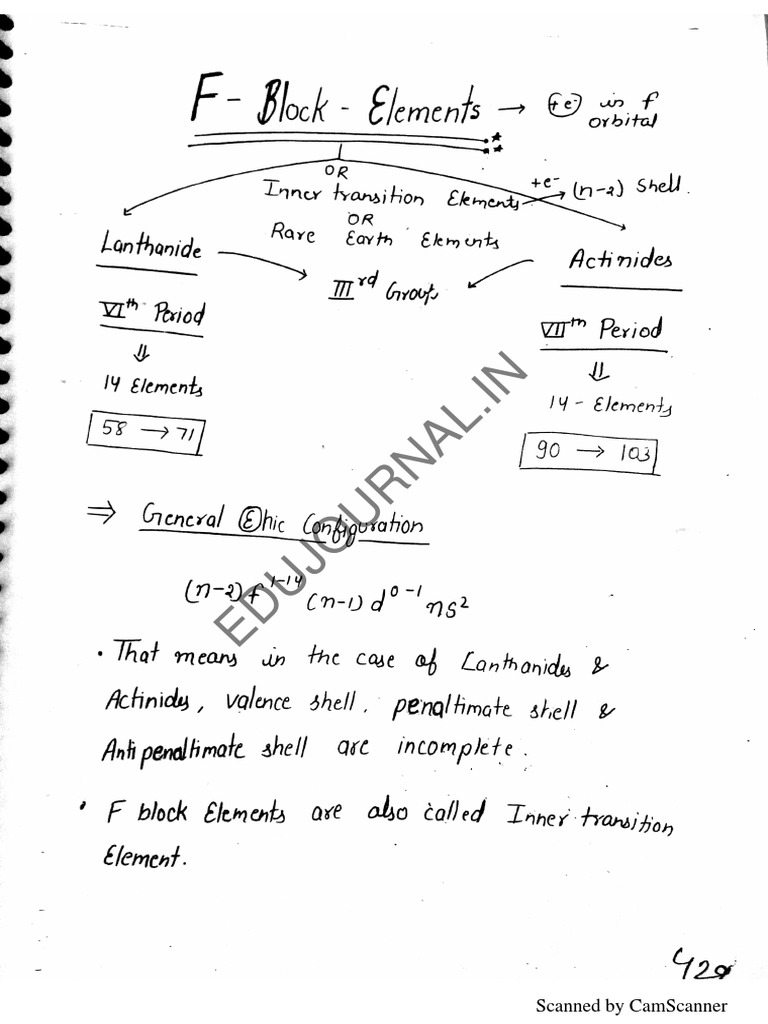 F - Block - Elements → +e⁻ in f
orbital
OR
Inner transition Elements +e⁻ → (n-2) Shell.
OR
Rare Earth Elements
Lanthanide
Actinides
IIIrd Group
VIth Period
VIIth Period
⇓
⇓
14 Elements
14 - Elements
58 → 71
90 → 103
EDUJOURNAL.IN
⇒ General Ⓔnic Configuration
(n-2)f¹⁻¹⁴ (n-1) d⁰⁻¹ ns²
• That means in the case of Lanthanides &
Actinides, valence shell, penaltimate shell &
Anti penaltimate shell are incomplete.
• F block Elements are also called Inner transition
Element.
Scanned by CamScanner